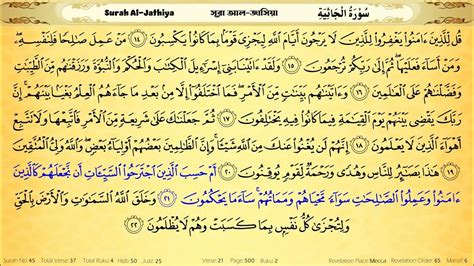 Surah Al-Jathiya সূরা আল-জাসিয়া سُورَةُ الْجَاثِيَةِ
قُل لِّلَّذِينَ ءَامَنُوا۟ يَغْفِرُوا۟ لِلَّذِينَ لَا يَرْجُونَ أَيَّامَ ٱللَّهِ لِيَجْزِىَ قَوْمًۢا بِمَا كَانُوا۟ يَكْسِبُونَ ١٤ مَنْ عَمِلَ صَٰلِحًا فَلِنَفْسِهِۦ ۖ
وَمَنْ أَسَآءَ فَعَلَيْهَا ۖ ثُمَّ إِلَىٰ رَبِّكُمْ تُرْجَعُونَ ١٥ وَلَقَدْ ءَاتَيْنَا بَنِىٓ إِسْرَٰٓءِيلَ ٱلْكِتَٰبَ وَٱلْحُكْمَ وَٱلنُّبُوَّةَ وَرَزَقْنَٰهُم مِّنَ ٱلطَّيِّبَٰتِ
وَفَضَّلْنَٰهُمْ عَلَى ٱلْعَٰلَمِينَ ١٦ وَءَاتَيْنَٰهُم بَيِّنَٰتٍ مِّنَ ٱلْأَمْرِ ۖ فَمَا ٱخْتَلَفُوٓا۟ إِلَّا مِنۢ بَعْدِ مَا جَآءَهُمُ ٱلْعِلْمُ بَغْيًۢا بَيْنَهُمْ ۚ إِنَّ
رَبَّكَ يَقْضِى بَيْنَهُمْ يَوْمَ ٱلْقِيَٰمَةِ فِيمَا كَانُوا۟ فِيهِ يَخْتَلِفُونَ ١٧ ثُمَّ جَعَلْنَٰكَ عَلَىٰ شَرِيعَةٍ مِّنَ ٱلْأَمْرِ فَٱتَّبِعْهَا وَلَا تَتَّبِعْ
أَهْوَآءَ ٱلَّذِينَ لَا يَعْلَمُونَ ١٨ إِنَّهُمْ لَن يُغْنُوا۟ عَنكَ مِنَ ٱللَّهِ شَيْـًٔا ۚ وَإِنَّ ٱلظَّٰلِمِينَ بَعْضُهُمْ أَوْلِيَآءُ بَعْضٍ ۖ وَٱللَّهُ وَلِىُّ ٱلْمُتَّقِينَ
١٩ هَٰذَا بَصَٰٓئِرُ لِلنَّاسِ وَهُدًى وَرَحْمَةٌ لِّقَوْمٍ يُوقِنُونَ ٢٠ أَمْ حَسِبَ ٱلَّذِينَ ٱجْتَرَحُوا۟ ٱلسَّيِّـَٔاتِ أَن نَّجْعَلَهُمْ كَٱلَّذِينَ
ءَامَنُوا۟ وَعَمِلُوا۟ ٱلصَّٰلِحَٰتِ سَوَآءً مَّحْيَاهُمْ وَمَمَاتُهُمْ ۚ سَآءَ مَا يَحْكُمُونَ ٢١ وَخَلَقَ ٱللَّهُ ٱلسَّمَٰوَٰتِ وَٱلْأَرْضَ بِٱلْحَقِّ
وَلِتُجْزَىٰ كُلُّ نَفْسٍۭ بِمَا كَسَبَتْ وَهُمْ لَا يُظْلَمُونَ ٢٢
Surah No: 45 Total Verse: 37 Total Ruku: 4 Hizb: 50 Juzz: 25 Verse: 21 Page: 500 Ruku: 2 Revelation Place: Mecca Revelation Order: 65 Manzil 6